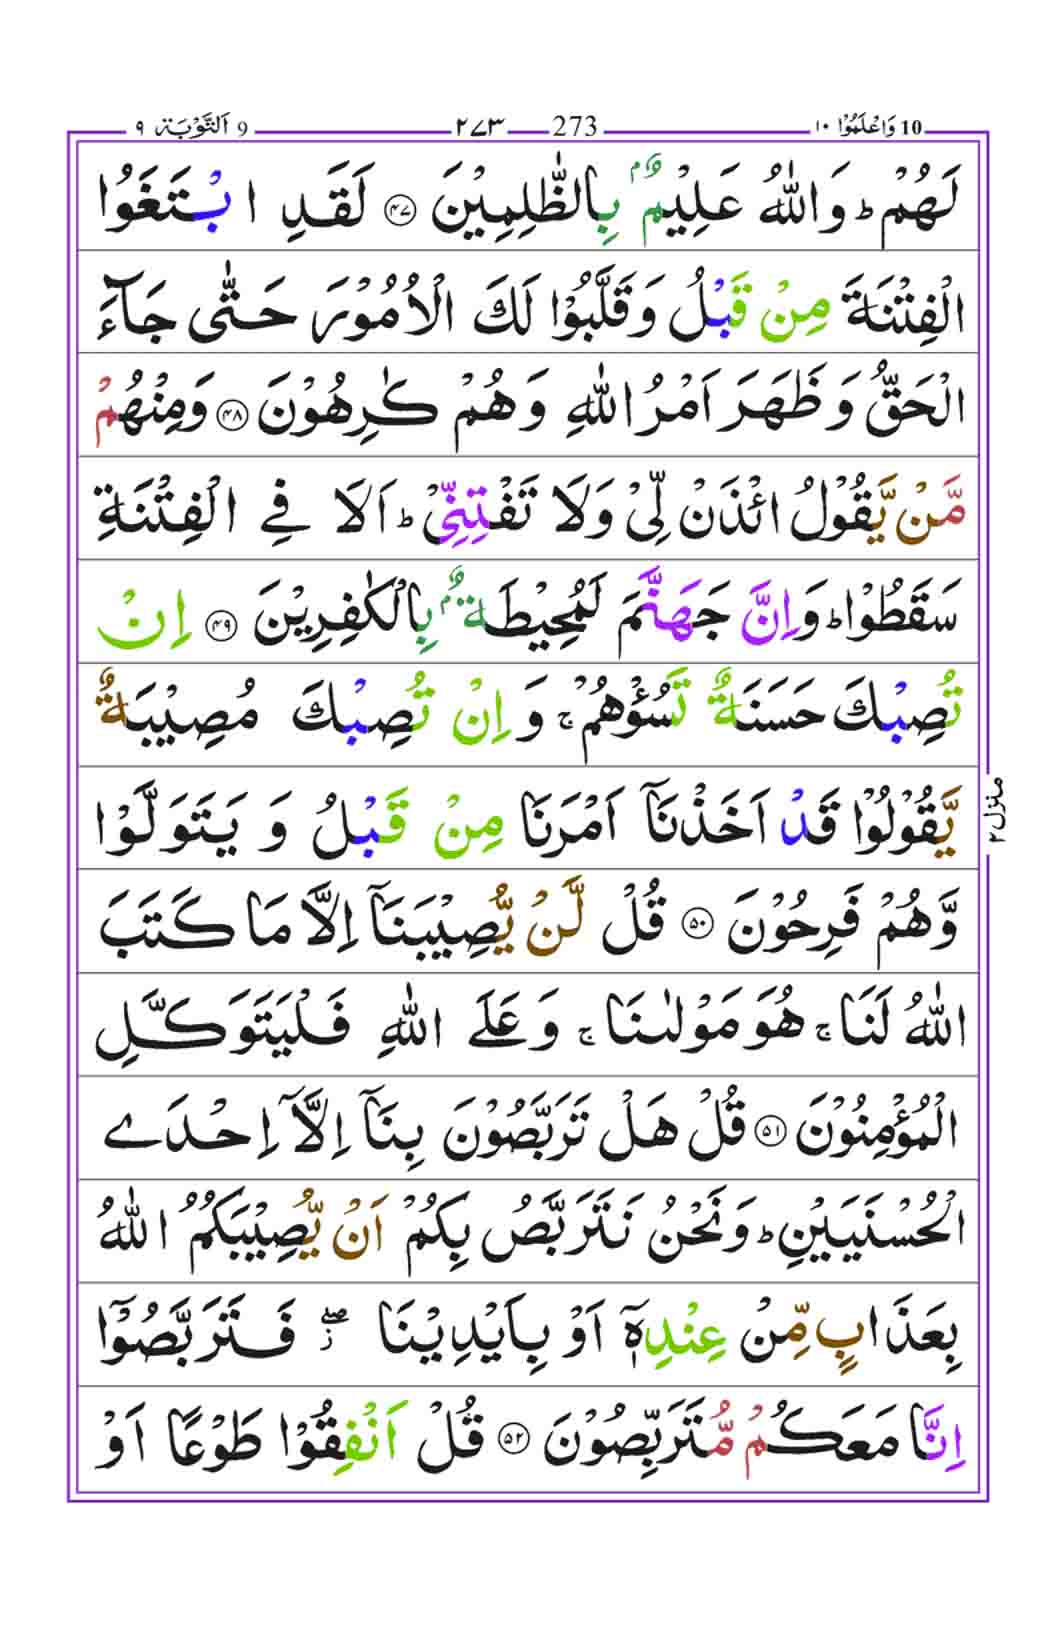 10 وَاعْلَمُوْۤا ١٠ 273 ٢٧٣ 9 اَلتَّوْبَة ٩
لَهُمْ ؕ وَاللّٰهُ عَلِيْمٌۢ بِالظّٰلِمِيْنَ ﴿۴۷﴾ لَقَدِ ابْتَغَوُا
الْفِتْنَةَ مِنْ قَبْلُ وَقَلَّبُوْا لَكَ الْاُمُوْرَ حَتّٰى جَآءَ
الْحَقُّ وَظَهَرَ اَمْرُ اللّٰهِ وَهُمْ كٰرِهُوْنَ ﴿۴۸﴾ وَمِنْهُمْ
مَّنْ يَّقُوْلُ ائْذَنْ لِّىْ وَلَا تَفْتِنِّىْ ؕ اَلَا فِے الْفِتْنَةِ
سَقَطُوْا ؕ وَاِنَّ جَهَنَّمَ لَمُحِيْطَةٌۢ بِالْكٰفِرِيْنَ ﴿۴۹﴾ اِنْ
تُصِبْكَ حَسَنَةٌ تَسُؤْهُمْ ۚ وَاِنْ تُصِبْكَ مُصِيْبَةٌ
يَّقُوْلُوْا قَدْ اَخَذْنَاۤ اَمْرَنَا مِنْ قَبْلُ وَيَتَوَلَّوْا
وَّهُمْ فَرِحُوْنَ ﴿۵۰﴾ قُلْ لَّنْ يُّصِيْبَنَاۤ اِلَّا مَا كَتَبَ
اللّٰهُ لَنَا ۚ هُوَ مَوْلٰىنَا ۚ وَعَلَے اللّٰهِ فَلْيَتَوَكَّلِ
الْمُؤْمِنُوْنَ ﴿۵۱﴾ قُلْ هَلْ تَرَبَّصُوْنَ بِنَاۤ اِلَّاۤ اِحْدَے
الْحُسْنَيَيْنِ ؕ وَنَحْنُ نَتَرَبَّصُ بِكُمْ اَنْ يُّصِيْبَكُمُ اللّٰهُ
بِعَذَابٍ مِّنْ عِنْدِهٖۤ اَوْ بِاَيْدِيْنَا ۖ ز فَتَرَبَّصُوْۤا
اِنَّا مَعَكُمْ مُّتَرَبِّصُوْنَ ﴿۵۲﴾ قُلْ اَنْفِقُوْا طَوْعًا اَوْ
منزل ٢